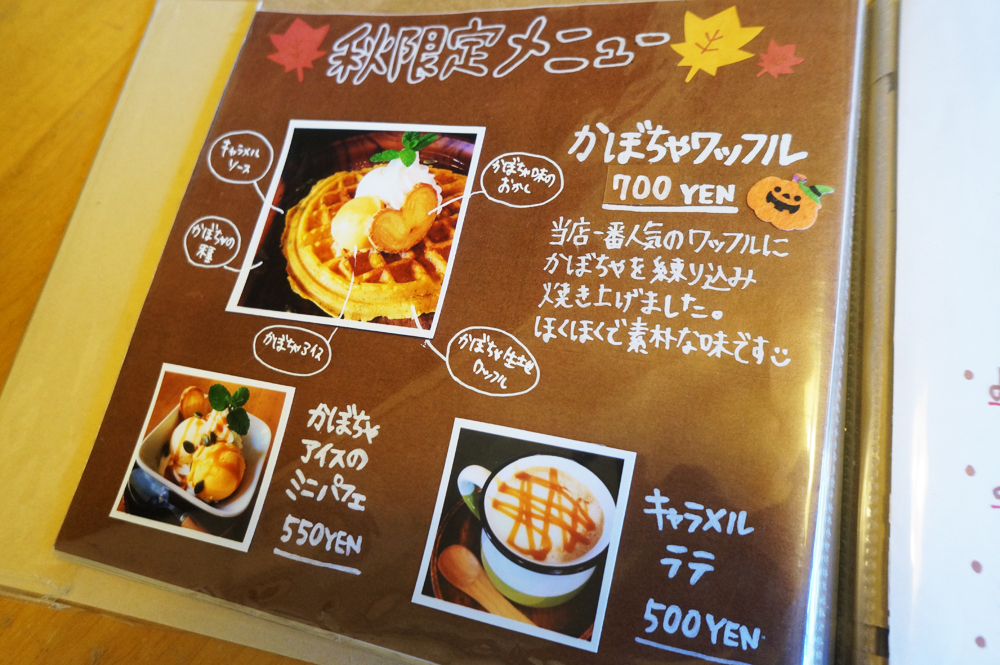 秋限定メニュー
キャラメル
ソース
かぼちゃの
種
かぼちゃ味の
おかし
かぼちゃアイス
かぼちゃ生地
ワッフル
かぼちゃワッフル
700 YEN
当店一番人気のワッフルに
かぼちゃを練り込み
焼き上げました。
ほくほくで素朴な味です
かぼちゃ
アイスの
ミニパフェ
550YEN
キャラメル
ラテ
500YEN